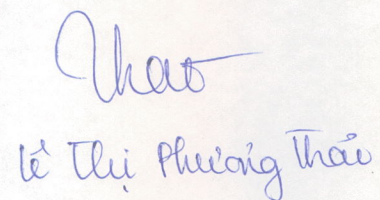 Thao
Lê Thị Phương Thảo